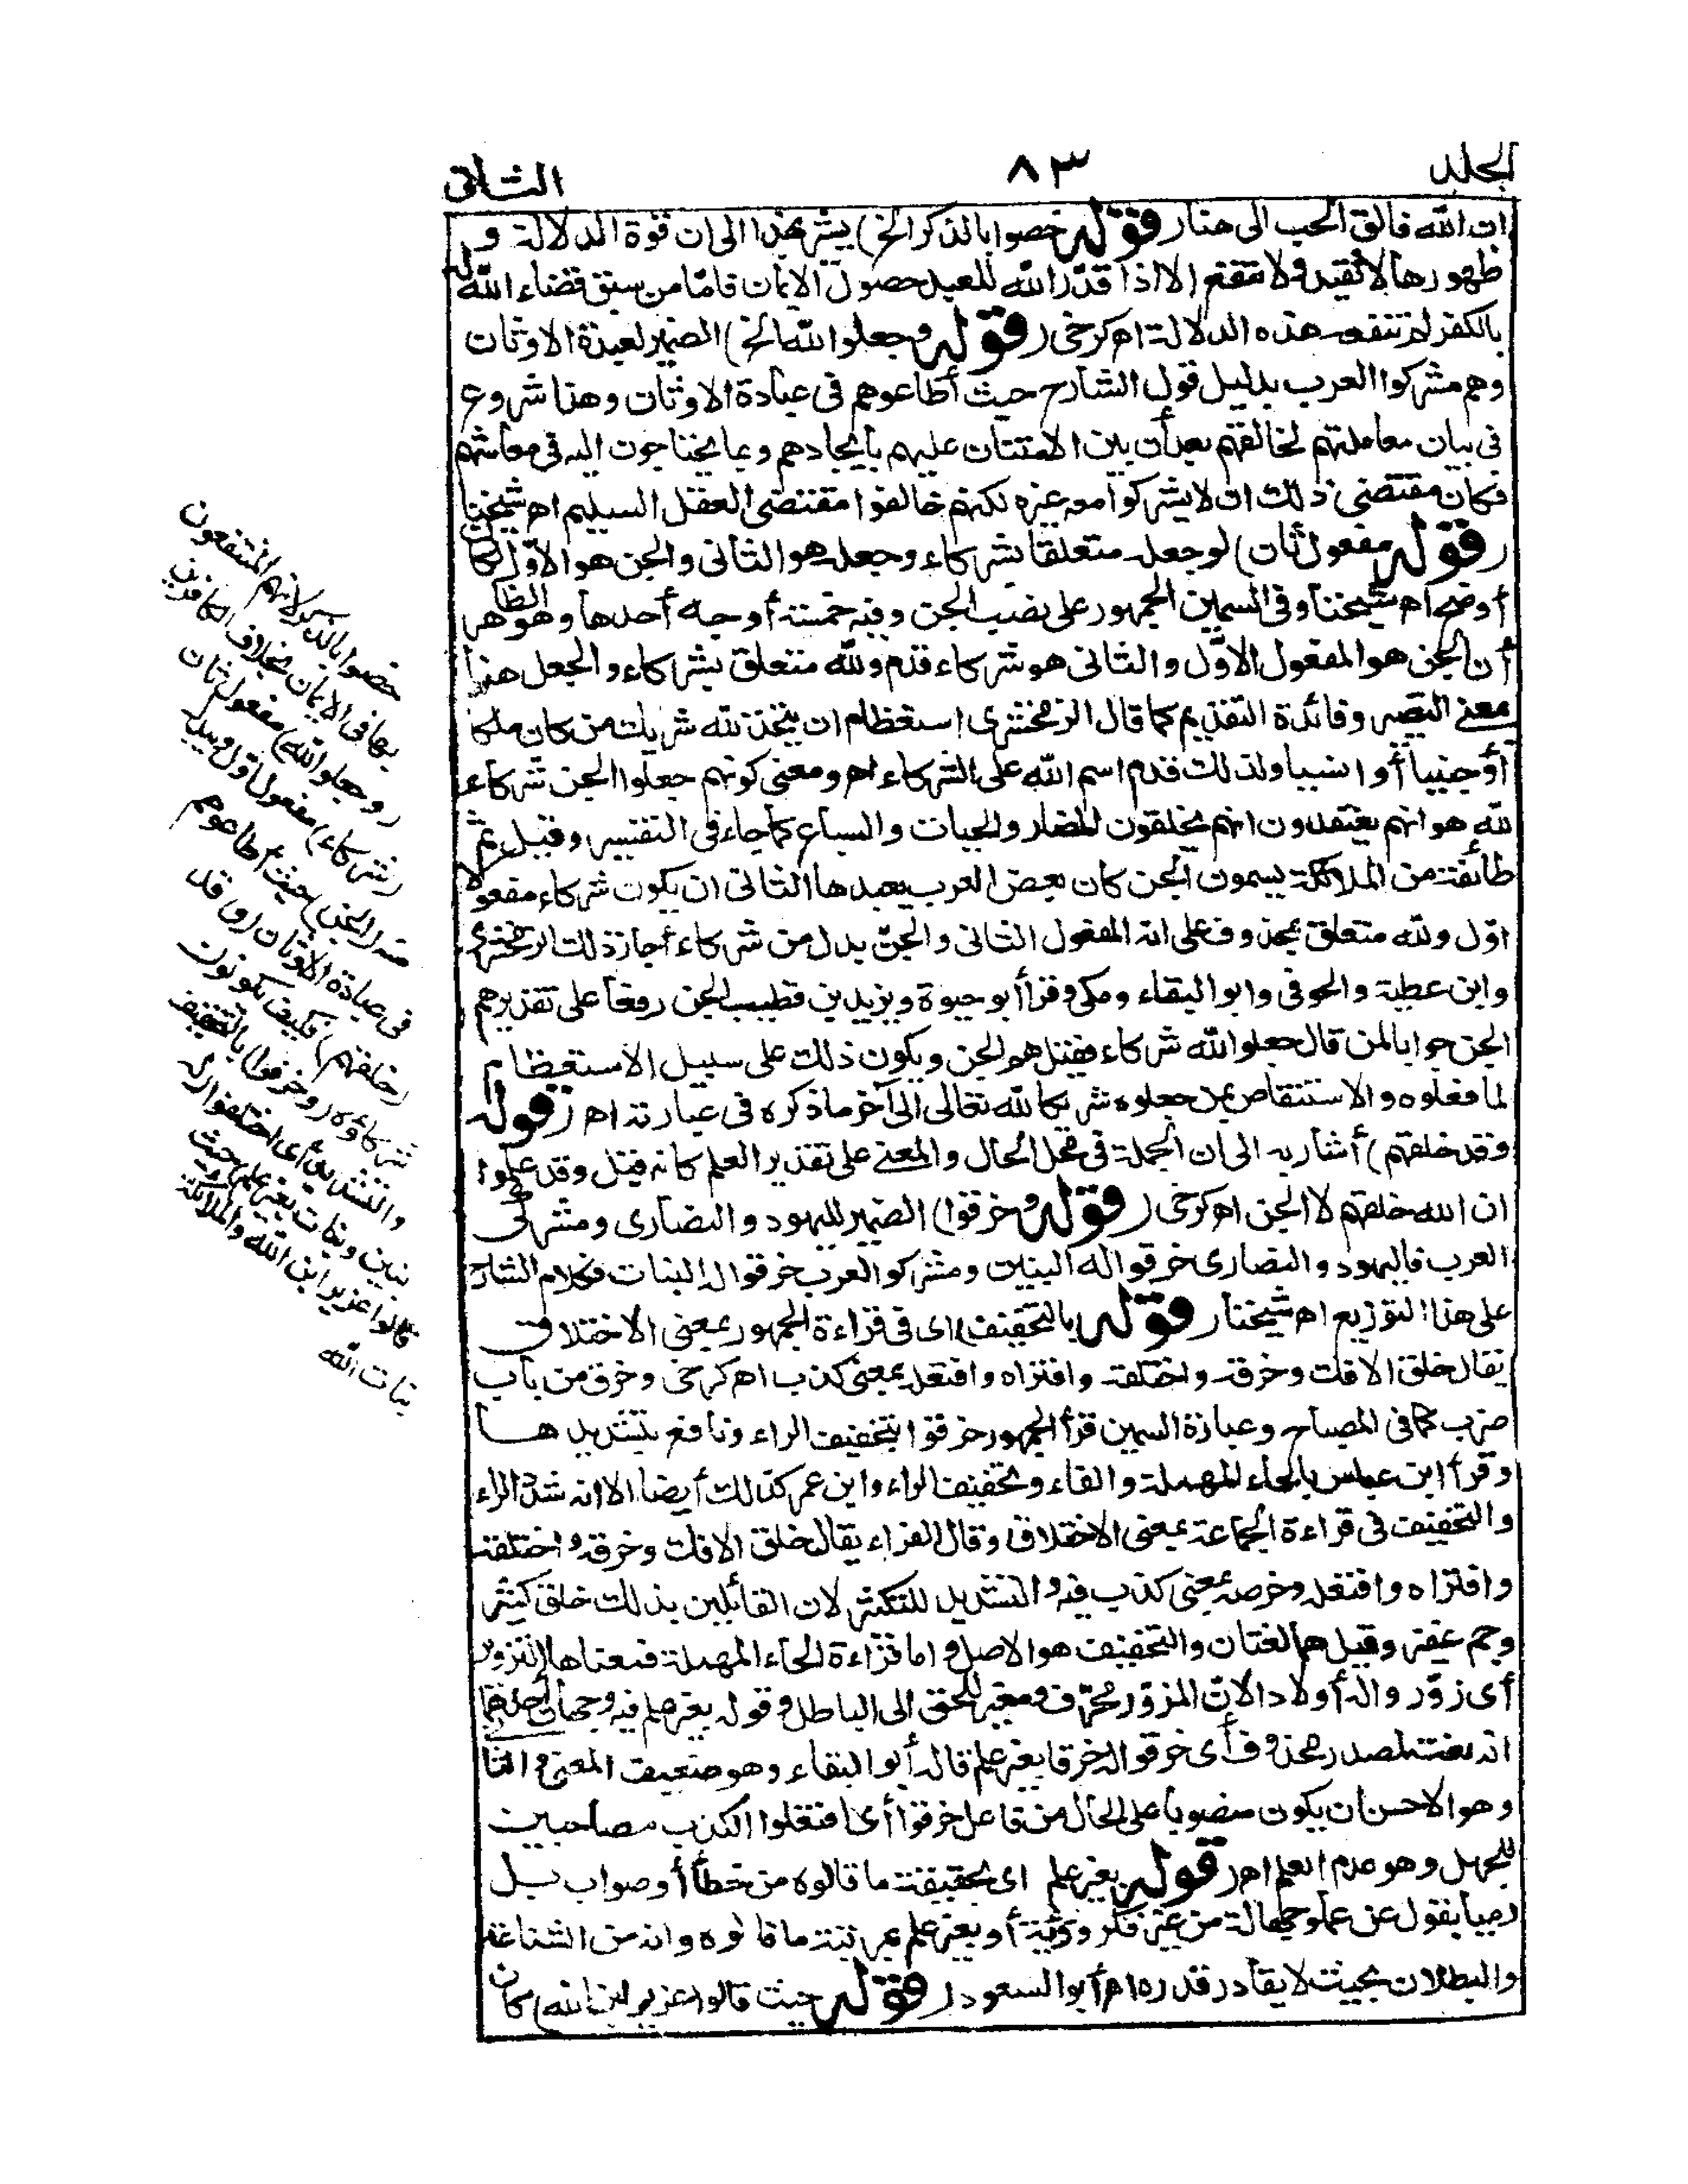 الجلد
٨٣
الثانى
ان الله فالق الحب الى هنا ر قوله خصوا بالذكر الخ) يشير بهذا الى ان قوة الدلالة و
ظهورها لا تفيد ولا تنفع الا اذا قدّر الله للعبد حصول الايمان فامّا من سبق قضاء الله له
بالكفر لم تنفعه هذه الدلالة اه كرخى (قوله وجعلوا لله الخ) الضمير لعبدة الاوثان
وهم مشركوا العرب بدليل قول الشارح حيث أطاعوهم فى عبادة الاوثان وهذا شروع
فى بيان معاملتهم لخالقهم بعد أن بين الامتنان عليهم بايجادهم وبما يحتاجون اليه فى معاشهم
فكان مقتضى ذلك ان لا يشركوا معه غيره لكنهم خالفوا مقتضى العقل السليم اه شيخنا
(قوله مفعول ثان) لو جعل متعلقا بشركاء وجعل هو الثانى والجن هو الاوّل لكان
أوضح اه شيخنا وفى السمين الجمهور على نصب الجن وفيه خمسة أوجه أحدها وهو الظاهر
أن الجن هو المفعول الاوّل والثانى هو شركاء قدم ولله متعلق بشركاء والجعل هنا
بمعنى التصيير وفائدة التقديم كما قال الزمخشرى استعظام ان يتخذ لله شريك من كان ملكا
أو جنيا أو انسيا ولذلك قدم اسم الله على الشركاء اه ومعنى كونهم جعلوا الجن شركاء
لله هو انهم يعتقدون انهم يخلقون المضار والحيات والسباع كما جاء فى التفسير وقيل ثم
طائفة من الملائكة يسمون الجن كان بعض العرب يعبدها الثانى ان يكون شركاء مفعولا
اوّل ولله متعلق بمحذوف على انه المفعول الثانى والجنّ بدل من شركاء أجاز ذلك الزمخشرى
وابن عطية والحوفى وابو البقاء ومكى وقرأ أبو حيوة ويزيد بن قطيب الجن رفعا على تقديرهم
الجن جوابا لمن قال جعلوا لله شركاء فقيل هو الجن ويكون ذلك على سبيل الاستعظام
لما فعلوه والاستنقاص بمن جعلوه شريكا لله تعالى الى آخر ما ذكره فى عبارته اه (قوله
وقد خلقهم) أشار به الى ان الجملة فى محل الحال والمعنى على تقدير العلم كانه قيل وقد علموا
ان الله خلقهم لا الجن اه كرخى (قوله وخرقوا) الضمير لليهود والنصارى ومشركى
العرب فاليهود والنصارى خرقوا له البنين ومشركو العرب خرقوا له البنات فكلام الشارح
على هذا التوزيع اه شيخنا (قوله بالتخفيف) اى فى قراءة الجمهور بمعنى الاختلاق
يقال خلق الافك وخرقه واختلقه وافتراه وافتعله بمعنى كذب اه كرخى وخرق من باب
ضرب كما فى المصباح وعبارة السمين قرأ الجمهور خرقوا بتخفيف الراء ونافع بتشديدها
وقرأ ابن عباس بالحاء المهملة والفاء وتخفيف الراء وابن عمر كذلك أيضا الا انه شدّد الراء
والتخفيف فى قراءة الجماعة بمعنى الاختلاق وقال الفراء يقال خلق الافك وخرقه واختلقه
وافتراه وافتعله وخرصه بمعنى كذب فيه والتشديد للتكثير لان القائلين بذلك خلق كثير
وجم غفير وقيل هما لغتان والتخفيف هو الاصل واما قراءة الحاء المهملة فمعناها التزوير
أى زوّروا له أولادا لانّ المزوّر محرّف ومغير للحق الى الباطل وقوله بغير علم فيه وجهان أحدهما
انه نعت لمصدر محذوف أى خرقوا له خرقا بغير علم قاله أبو البقاء وهو ضعيف المعنى والثا
وهو الاحسن ان يكون منصوبا على الحال من فاعل خرقوا أى افتعلوا الكذب مصاحبين
للجهل وهو عدم العلم اه (قوله بغير علم اى بحقيقة ما قالوه من خطأ أو صواب بل
رميا بقول عن عمى وجهالة من غير فكر ورويّة أو بغير علم بمرتبة ما قالوه وانه من الشناعة
والبطلان بحيث لا يقادر قدره اه أبو السعود (قوله حيث قالوا عزير ابن الله) كان
خصوا بالذكر لانهم المنتفعون
بها فى الايمان بخلاف الكافرين
(وجعلوا لله) مفعول ثان
(شركاء) مفعول اوّل ويبدل
منه (الجن) حيث أطاعوهم
فى عبادة الاوثان (و) قد
(خلقهم) فكيف يكونون
شركاؤه (وخرقوا) بالتخفيف
والتشديد أى اختلقوا (له
بنين وبنات بغير علم) حيث
قالوا عزير ابن الله والملائكة
بنات الله